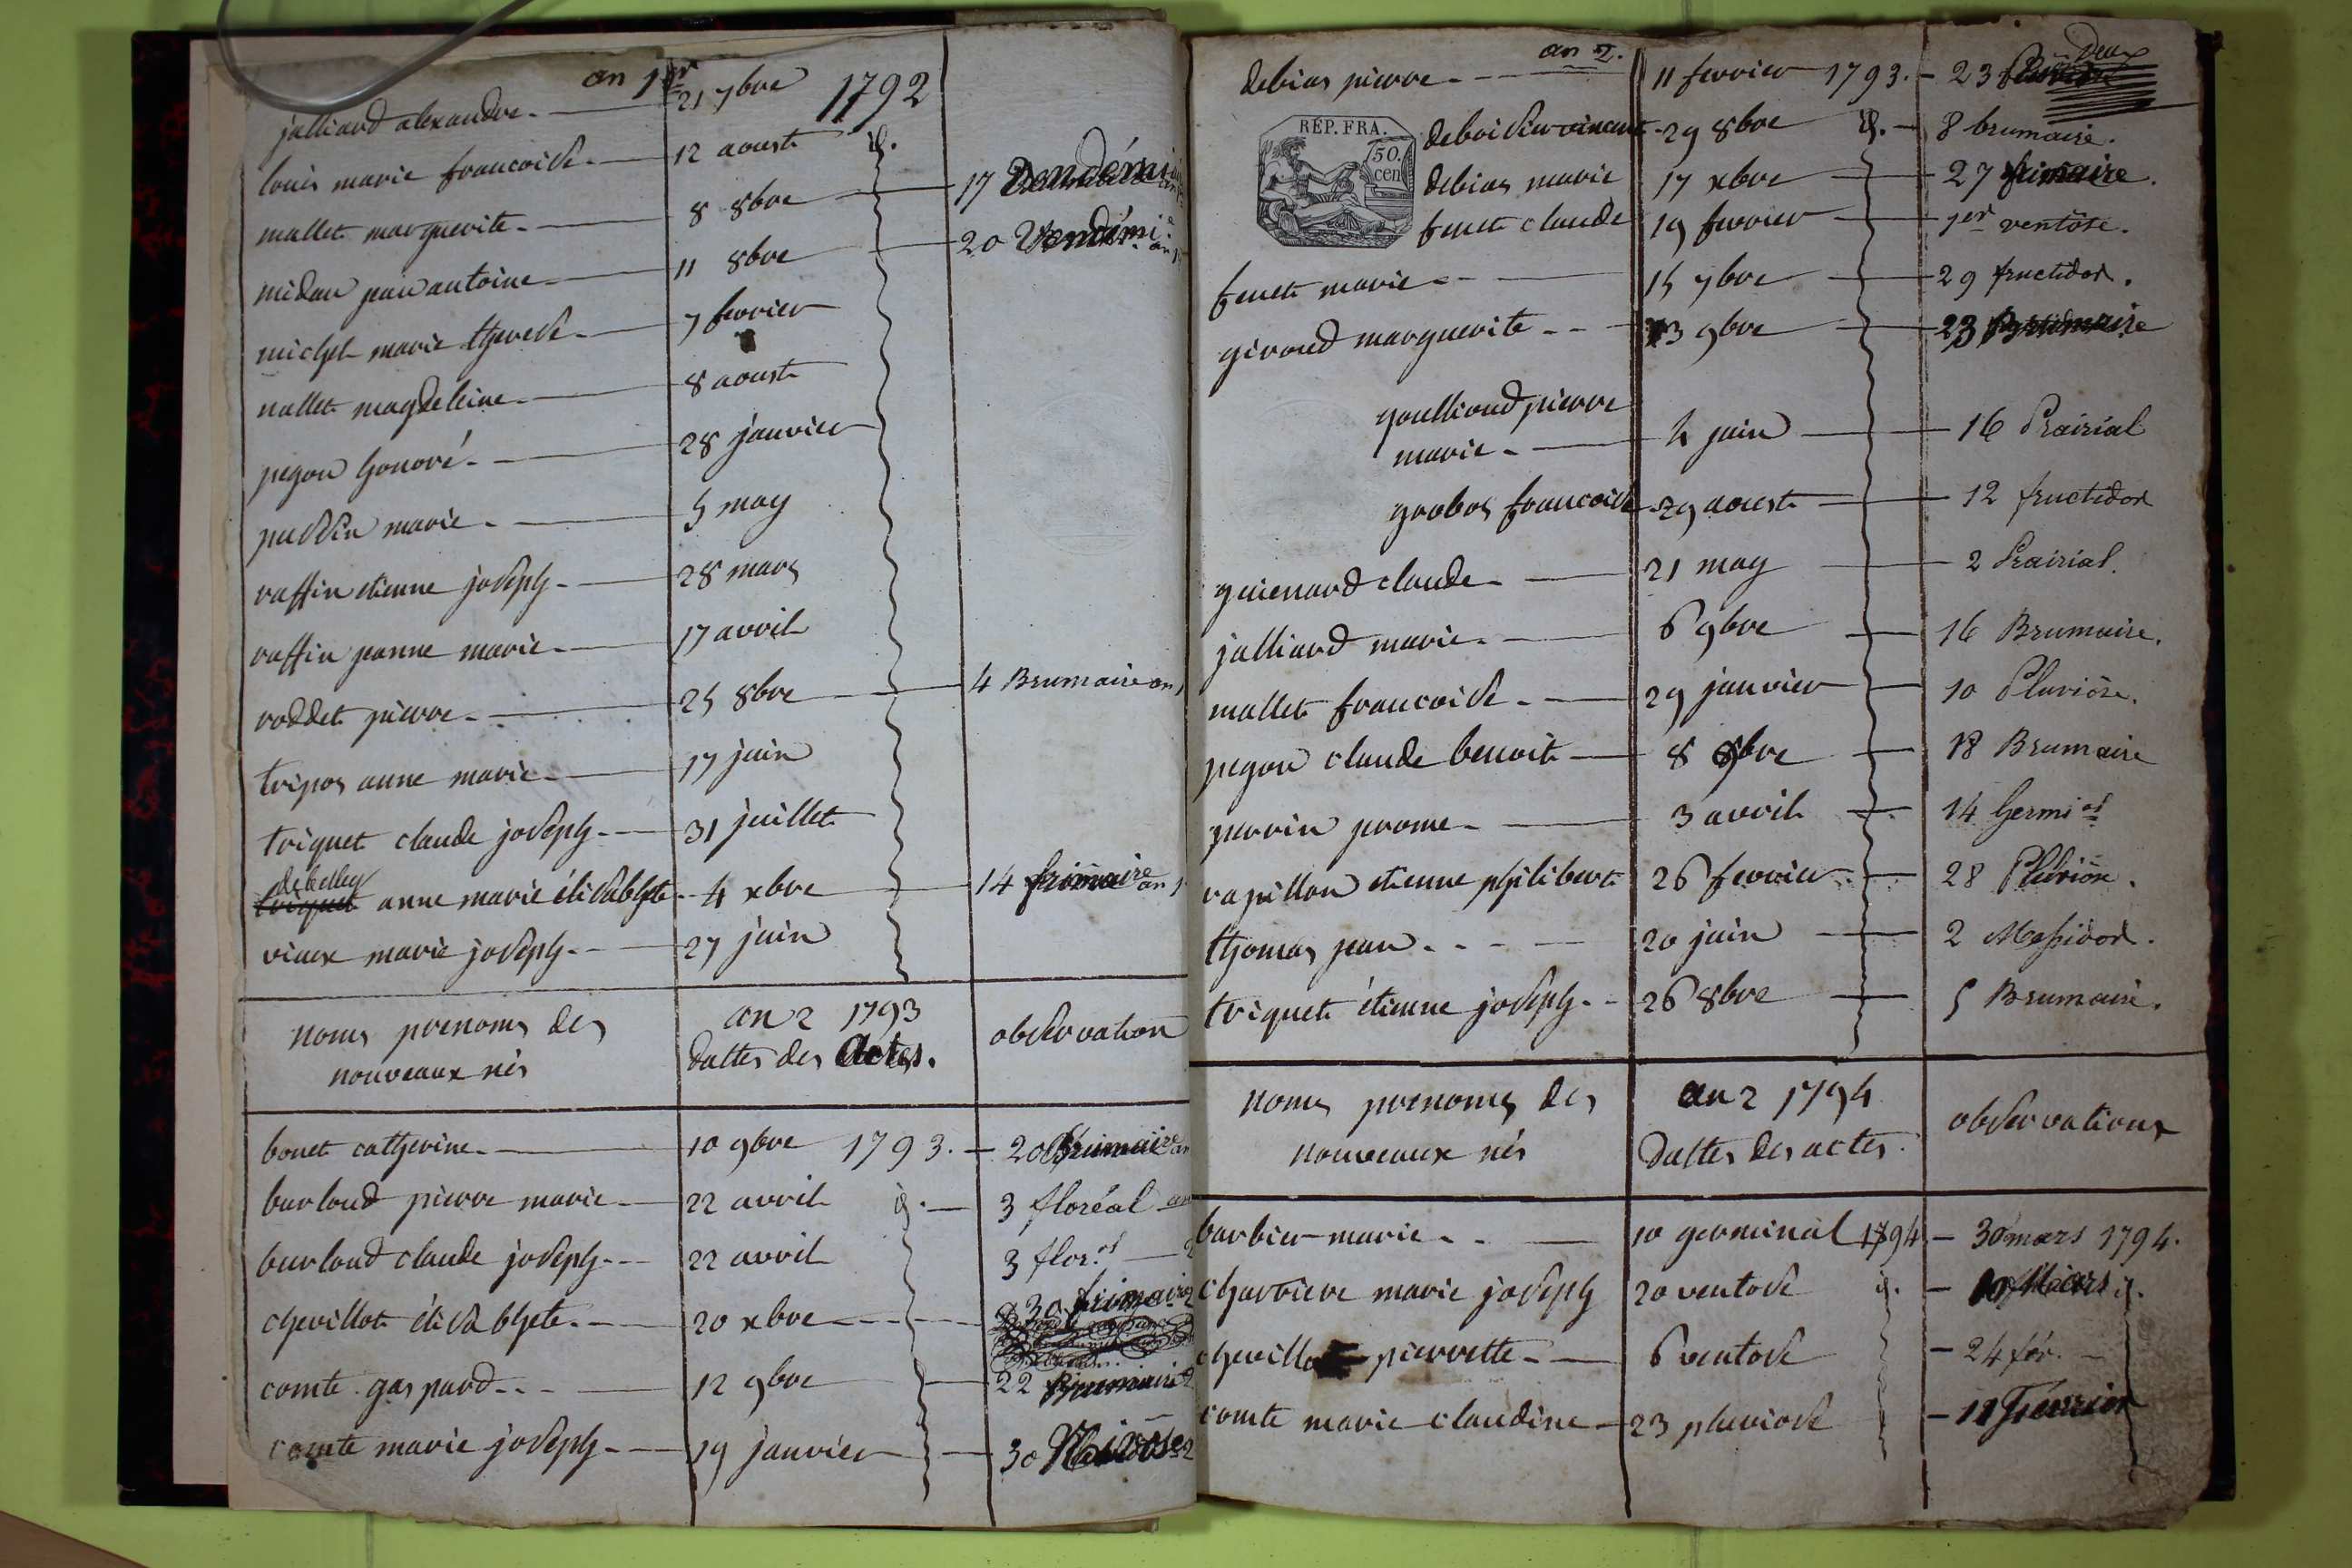 an 1er
julliard alexandre. — 21 7bre 1792
louis marie francoise. — 12 aoust id.
mallet marguerite. — 8 8bre — 17 Vendémi
midan jean antoine — 11 8bre — 20 Vendémi
michel marie therese. — 7 fevrier
nallet magdeleine. — 8 aoust
pegon honoré. — 28 janvier
pussin marie. — 5 may
raffin etienne joseph. — 28 mars
raffin jeanne marie. — 17 avril
roddet pierre. — 25 8bre — 4 Brumaire an 1
tripos anne marie. — 17 juin
triquet claude joseph. — 31 juillet
debelley
triquet anne marie élisabhete. 4 xbre — 14 frimaire an 1
viaux marie joseph. — 27 juin
noms prenoms des an 2 1793 observation
nouveaux nés dattes des Actes.
bonet catherine. — 10 9bre 1793. — 20 Brumaire an
burloud pierre marie — 22 avril id. — 3 floréal an
burloud claude joseph. — 22 avril 3 flor.al — 2
chevillot élisabhete. — 20 xbre — 30 frimaire 2
comte gaspard. — 12 9bre — 22 Brumaire 2
comte marie joseph. — 19 janvier — 30 Nivôse 2
an 2.
debias pierre. — 11 fevrier 1793. — 23
Deux
RÉP. FRA.
50.
cen
deboissieu vincent. 29 8bre id. — 8 brumaire.
debias marie 17 xbre — 27 frimaire.
fenet claude 19 fevrier — 1er ventôse.
fenet marie. — 15 7bre — 29 fructidor.
giroud marguerite. — 13 9bre — 23 Brumaire
goullioud pierre
marie. — 4 juin — 16 Prairial
grobos francoise 29 aoust — 12 fructidor
guienard claude. — 21 may — 2 Prairial.
julliard marie. — 6 9bre — 16 Brumaire.
mallet francoise. — 29 janvier — 10 Pluviôse.
pegon claude benoit — 8 9bre — 18 Brumaire
perrin jerome. — 3 avril — 14 Germi al
rapillon etienne philibert 26 fevrier — 28 Pluviôse.
thomas jean. — 20 juin — 2 Messidor.
triquet étienne joseph. — 26 8bre — 5 Brumaire.
noms prenoms des an 2 1794 observations
nouveaux nés dattes des actes.
barbier marie. — 10 germinal 1794 — 30 mars 1794.
charriere marie joseph 20 ventose id. — 10 Mars id.
chevillot pierrette. — 6 ventose — 24 fév. —
comte marie claudine — 23 pluviose — 11 Février